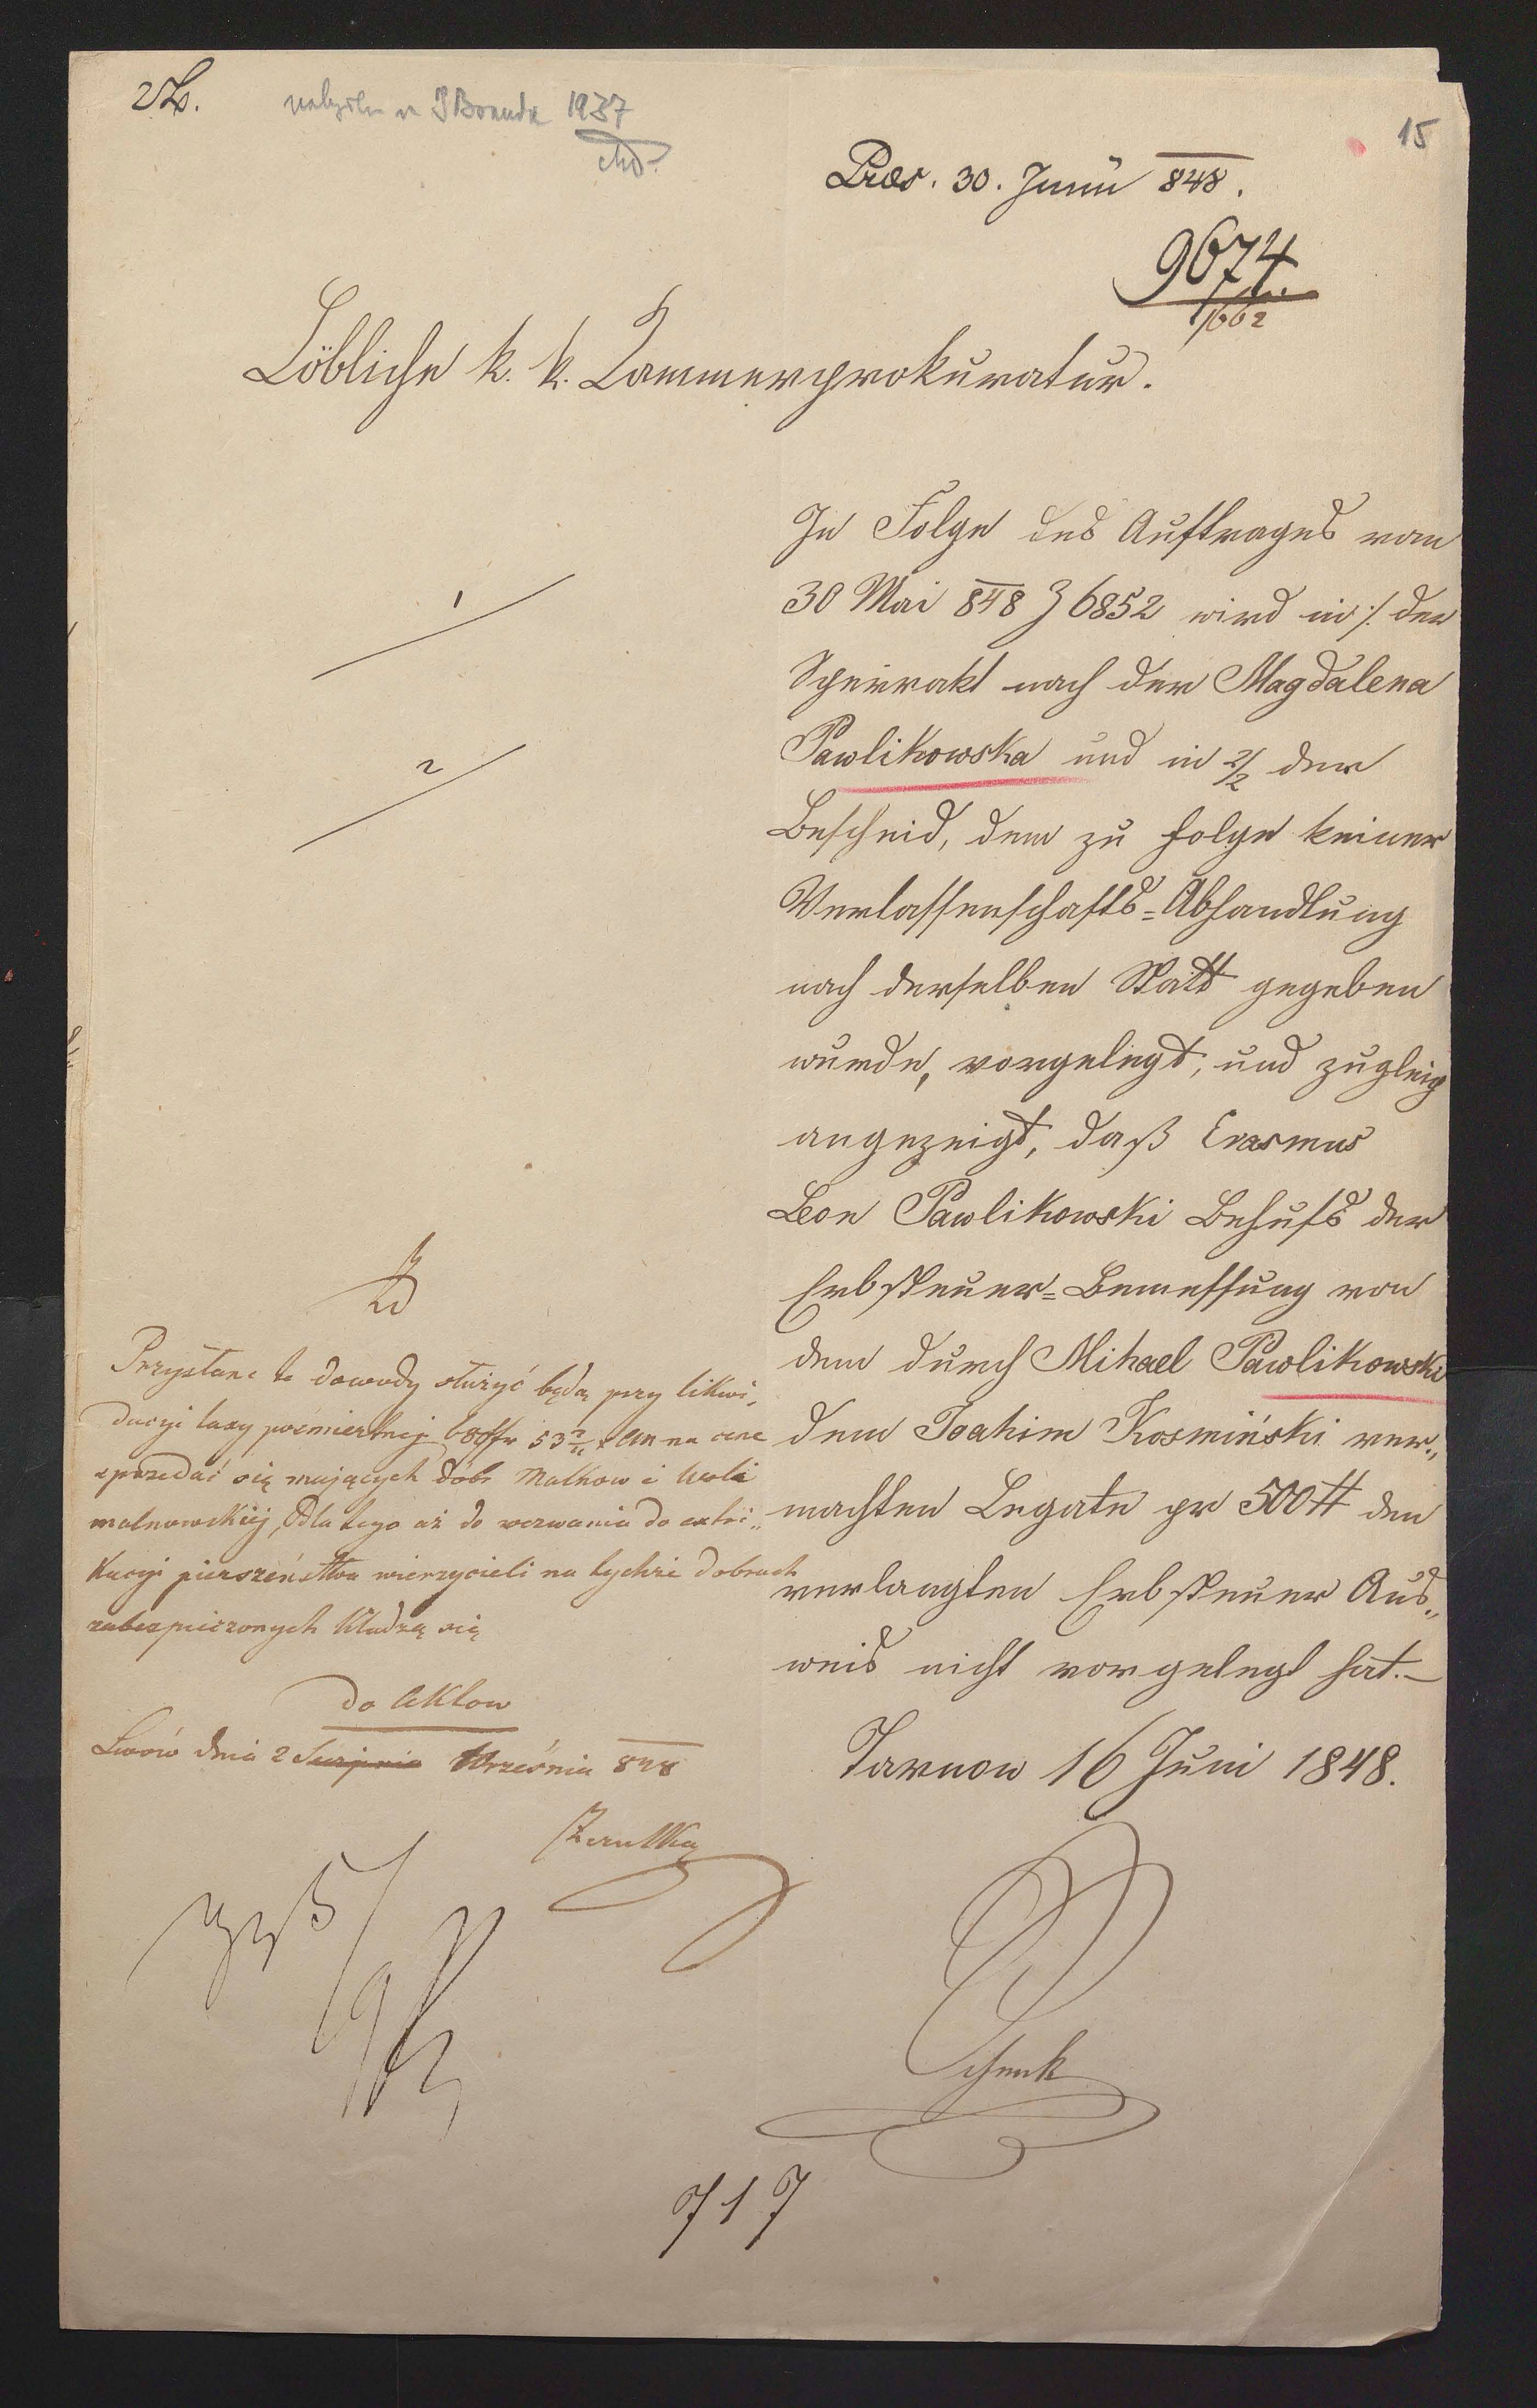 1937
15
Præs. 30. Junii 848.
9674
1662
Löbliche k. k. Kammerprokuratur.
In Folge des Auftrages vom
30 Mai 848 Z 6852 wird in ./. der
Sperrakt nach der Magdalena
Pawlikowska und in 2/2 der
Bescheid, dem zu folge keiner
Verlassenschafts=Abhandlung
nach derselben Statt gegeben
wurde, vorgelegt, und zugleich
angezeigt, daß Erasmus
Leon Pawlikowski Behufs der
Erbsteuer=Bemessung von
dem durch Mihael Pawlikowski
dem Joahim Kosmiński ver„
machten Legate pr 500 # den
verlangten Erbsteuer Aus„
weis nicht vorgelegt hat.–
Tarnow 16 Juni 1848.
Schenk
1
2
Przysłane te dowody służyć będą przy likwi„
dacyi taxy pośmiertnej 53 na cenę
sprzedać się mających dóbr Malkow i Woli
malnowskiej, Dla tego aż do wezwania do extri„
kacyi pierszeństwa wierzycieli na tychże dobrach
zabezpieczonych kładzą się
do Aktow
Lwów dnia 2 Sierpnia Września 848
717